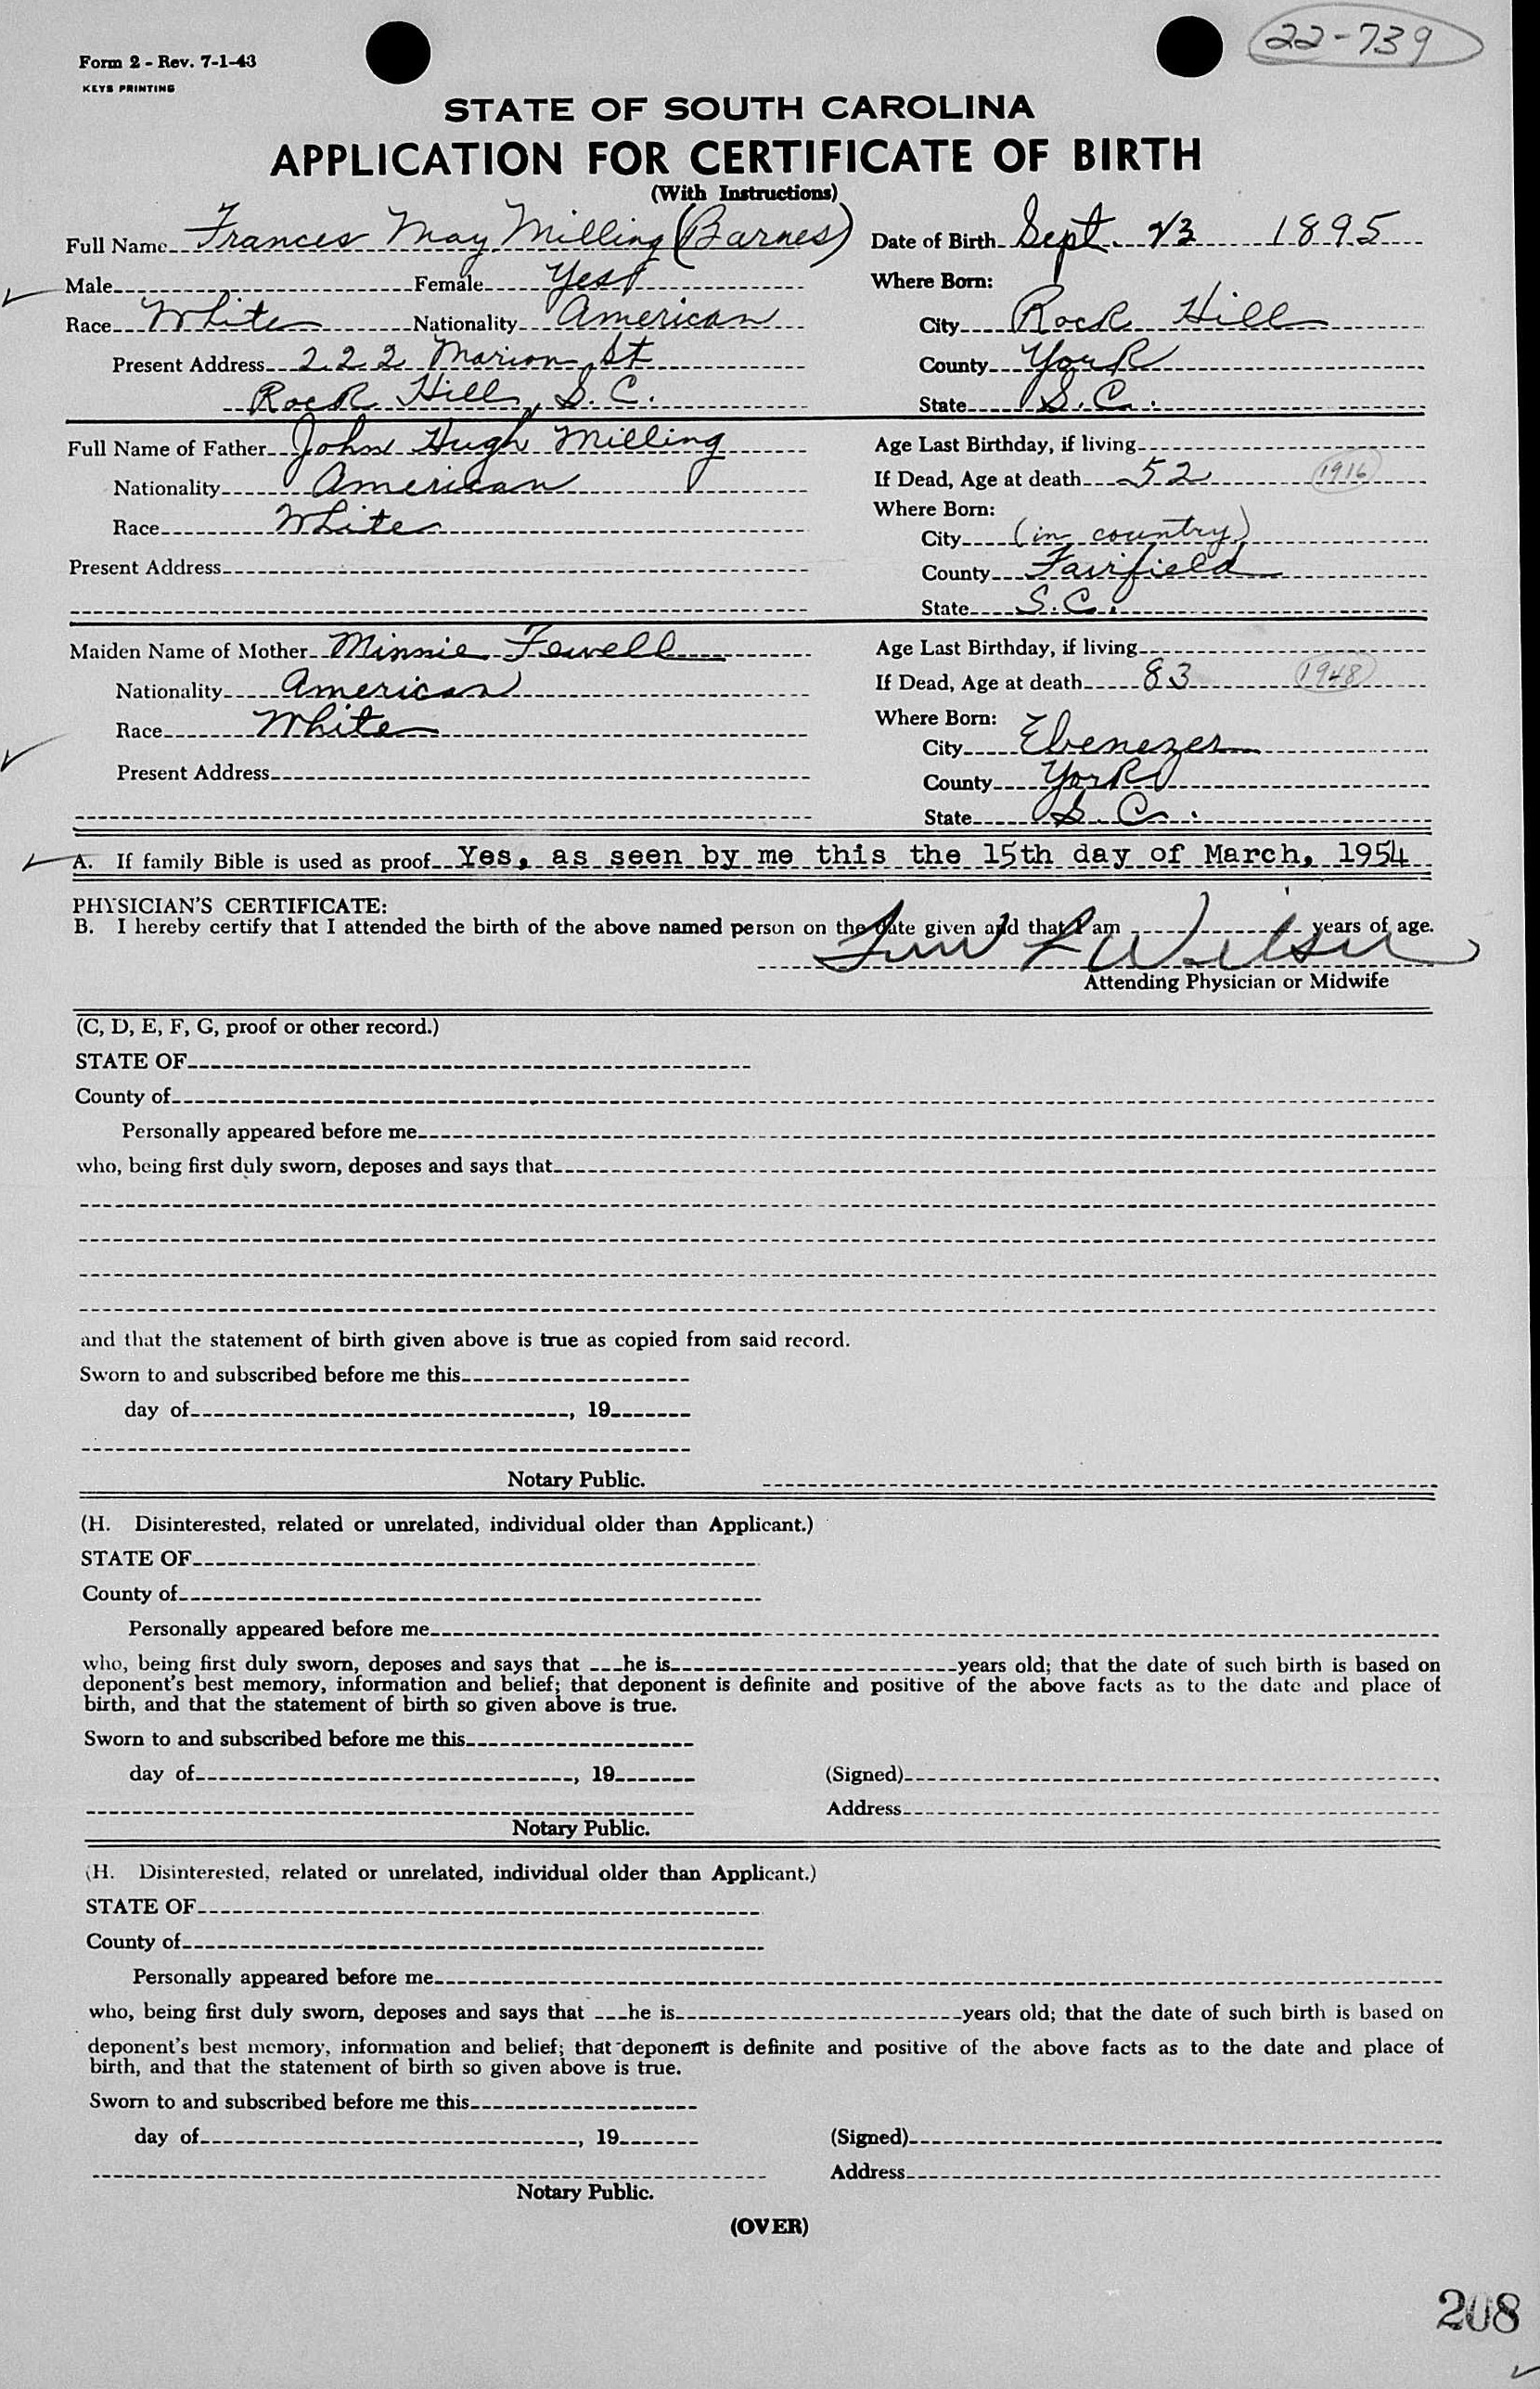 22-739
Form 2 - Rev. 7-1-43
KEYS PRINTING
STATE OF SOUTH CAROLINA
APPLICATION FOR CERTIFICATE OF BIRTH
(With Instructions)
Full Name Frances May Milling (Barnes) Date of Birth Sept. 1895
Male Female Yes Where Born:
Race White Nationality American City Rock Hill
Present Address 222 Marion St County York
Rock Hill, S. C. State S. C.
Full Name of Father John Hugh Milling Age Last Birthday, if living
Nationality American If Dead, Age at death 52 1916
Race White Where Born:
City (in country)
Present Address County Fairfield
State S. C.
Maiden Name of Mother Minnie Fewell Age Last Birthday, if living
Nationality American If Dead, Age at death 83 1948
Race White Where Born:
City Ebenezer
Present Address County York
State S. C.
A. If family Bible is used as proof Yes, as seen by me this the 15th day of March, 1954
PHYSICIAN'S CERTIFICATE:
B. I hereby certify that I attended the birth of the above named person on the date given and that I am years of age.
L Wilson
Attending Physician or Midwife
(C, D, E, F, G, proof or other record.)
STATE OF
County of
Personally appeared before me
who, being first duly sworn, deposes and says that
and that the statement of birth given above is true as copied from said record.
Sworn to and subscribed before me this
day of , 19
Notary Public.
(H. Disinterested, related or unrelated, individual older than Applicant.)
STATE OF
County of
Personally appeared before me
who, being first duly sworn, deposes and says that he is years old; that the date of such birth is based on
deponent's best memory, information and belief; that deponent is definite and positive of the above facts as to the date and place of
birth, and that the statement of birth so given above is true.
Sworn to and subscribed before me this
day of , 19 (Signed)
Address
Notary Public.
(H. Disinterested, related or unrelated, individual older than Applicant.)
STATE OF
County of
Personally appeared before me
who, being first duly sworn, deposes and says that he is years old; that the date of such birth is based on
deponent's best memory, information and belief; that deponent is definite and positive of the above facts as to the date and place of
birth, and that the statement of birth so given above is true.
Sworn to and subscribed before me this
day of , 19 (Signed)
Address
Notary Public.
(OVER)
208